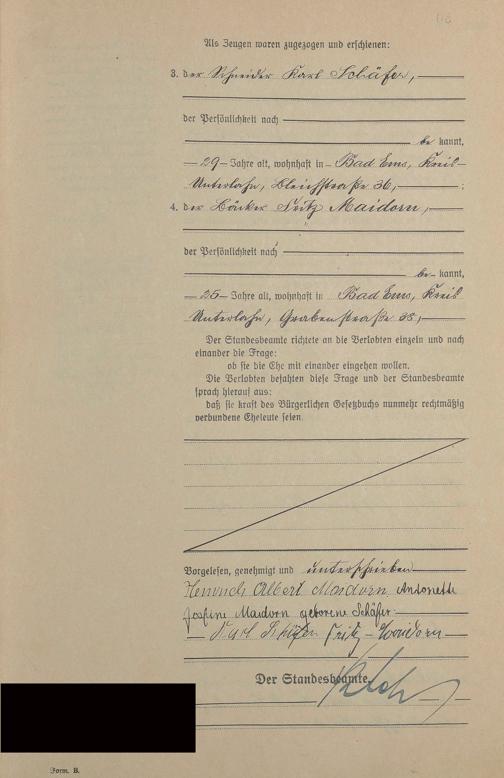 Als Zeugen waren zugezogen und erschienen:
3. der Schneider Karl Schäfer,
der Persönlichkeit nach
be kannt,
29 Jahre alt, wohnhaft in Bad Ems, Kreis
Unterlahn, Bleichstraße 36, ;
4. der Bäcker Fritz Maidorn,
der Persönlichkeit nach
be kannt,
25 Jahre alt, wohnhaft in Bad Ems, Kreis
Unterlahn, Grabenstraße 38,
Der Standesbeamte richtete an die Verlobten einzeln und nach
einander die Frage:
ob sie die Ehe mit einander eingehen wollen.
Die Verlobten bejahten diese Frage und der Standesbeamte
sprach hierauf aus:
daß sie kraft des Bürgerlichen Gesetzbuchs nunmehr rechtmäßig
verbundene Eheleute seien.
Vorgelesen, genehmigt und unterschrieben
Heinrich Albert Maidorn Antonette
Josefine Maidorn geborene Schäfer
Karl Schäfer Fritz Maidorn
Der Standesbeamte.
Form. B.